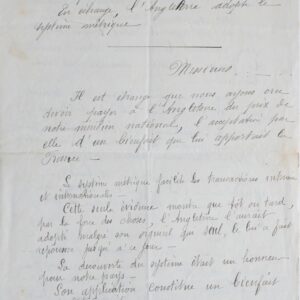 En échange, l'Angleterre adopte le
système métrique
Il est étrange que nous ayons cru
devoir payer à l'Angleterre du prix de
notre méridien national, l'acceptation par
elle d'un bienfait que lui apportait la
France —
Le système métrique facilite les transactions internes
et internationales —
Cette seule évidence montre que tôt ou tard,
par la force des choses, l'Angleterre l'aurait
adopté malgré son orgueil qui seul, le lui a fait
repousser jusqu'à ce jour —
La découverte du système était un honneur
pour notre pays —
Son application constitue un bienfait